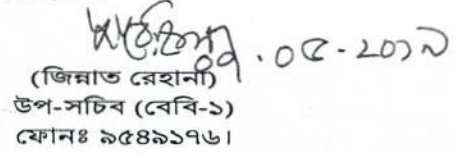 ০৭.০৫-২০১৯
(জিন্নাত রেহানা)
উপ-সচিব (বেবি-১)
ফোনঃ ৯৫৪৯১৭৬।